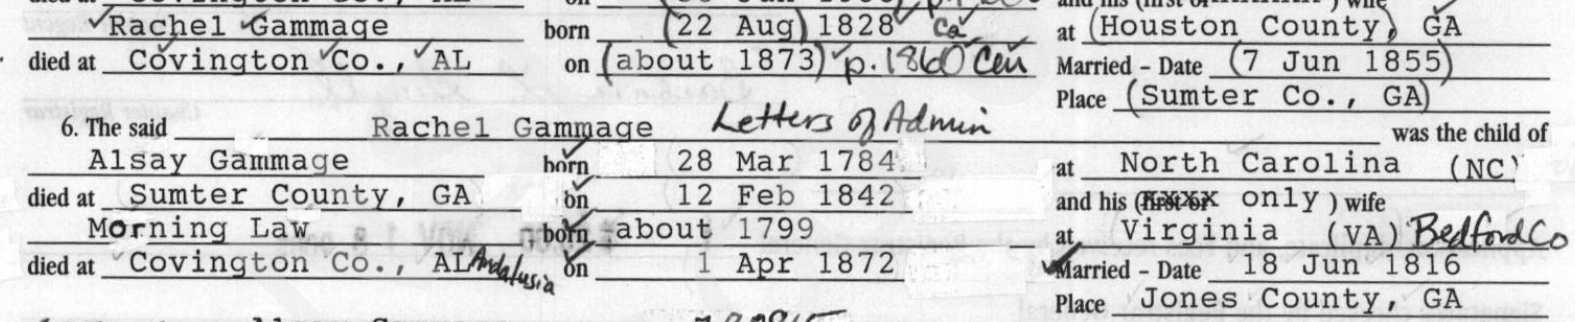 Rachel Gammage born (22 Aug) 1828 Ca at (Houston County) GA
died at Covington Co., AL on (about 1873) p. 1860 Cen Married - Date (7 Jun 1855)
Place (Sumter Co., GA)
6. The said Rachel Gammage Letters of Admin was the child of
Alsay Gammage born 28 Mar 1784 at North Carolina (NC)
died at Sumter County, GA on 12 Feb 1842 and his (first or only ) wife
Morning Law born about 1799 at Virginia (VA) Bedford Co
died at Covington Co., AL Andalusia on 1 Apr 1872 Married - Date 18 Jun 1816
Place Jones County, GA